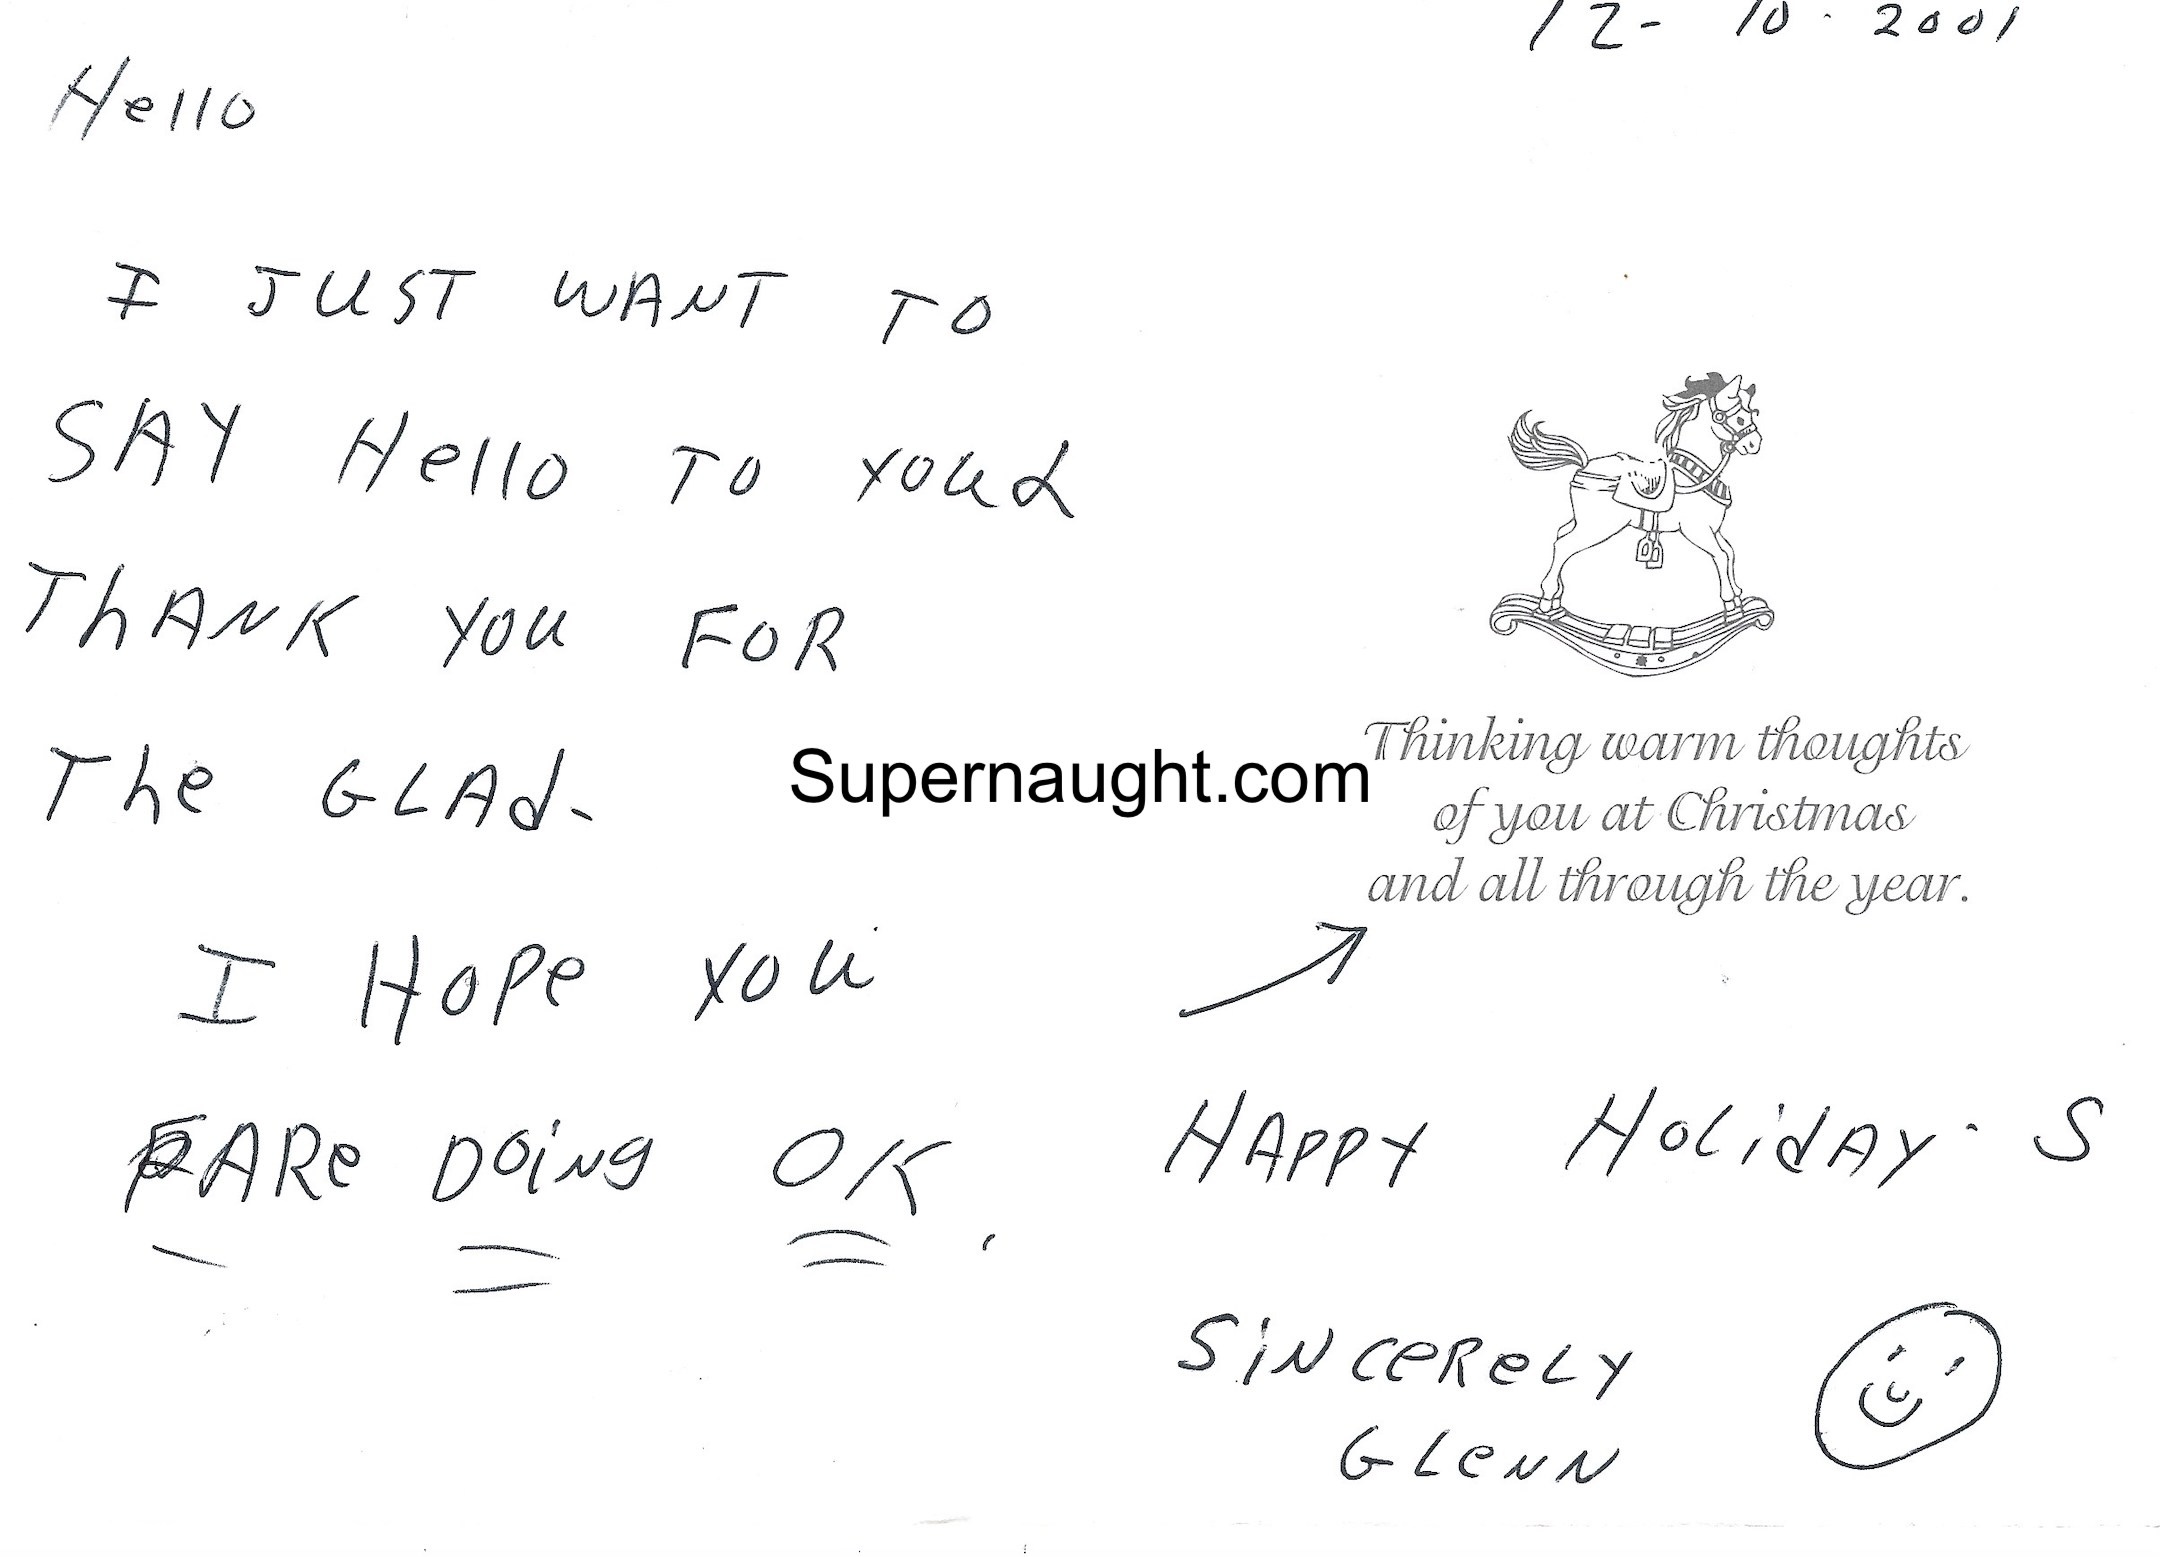 12-10-2001
Hello
I JUST WANT TO
SAY Hello TO YOU &
THANK YOU FOR
The GLAd-
I Hope YOU
ARe DOiNg OK.
Supernaught.com
Thinking warm thoughts
of you at Christmas
and all through the year.
HAPPY HOLidAY·S
SiNCeReLY
GLeNN